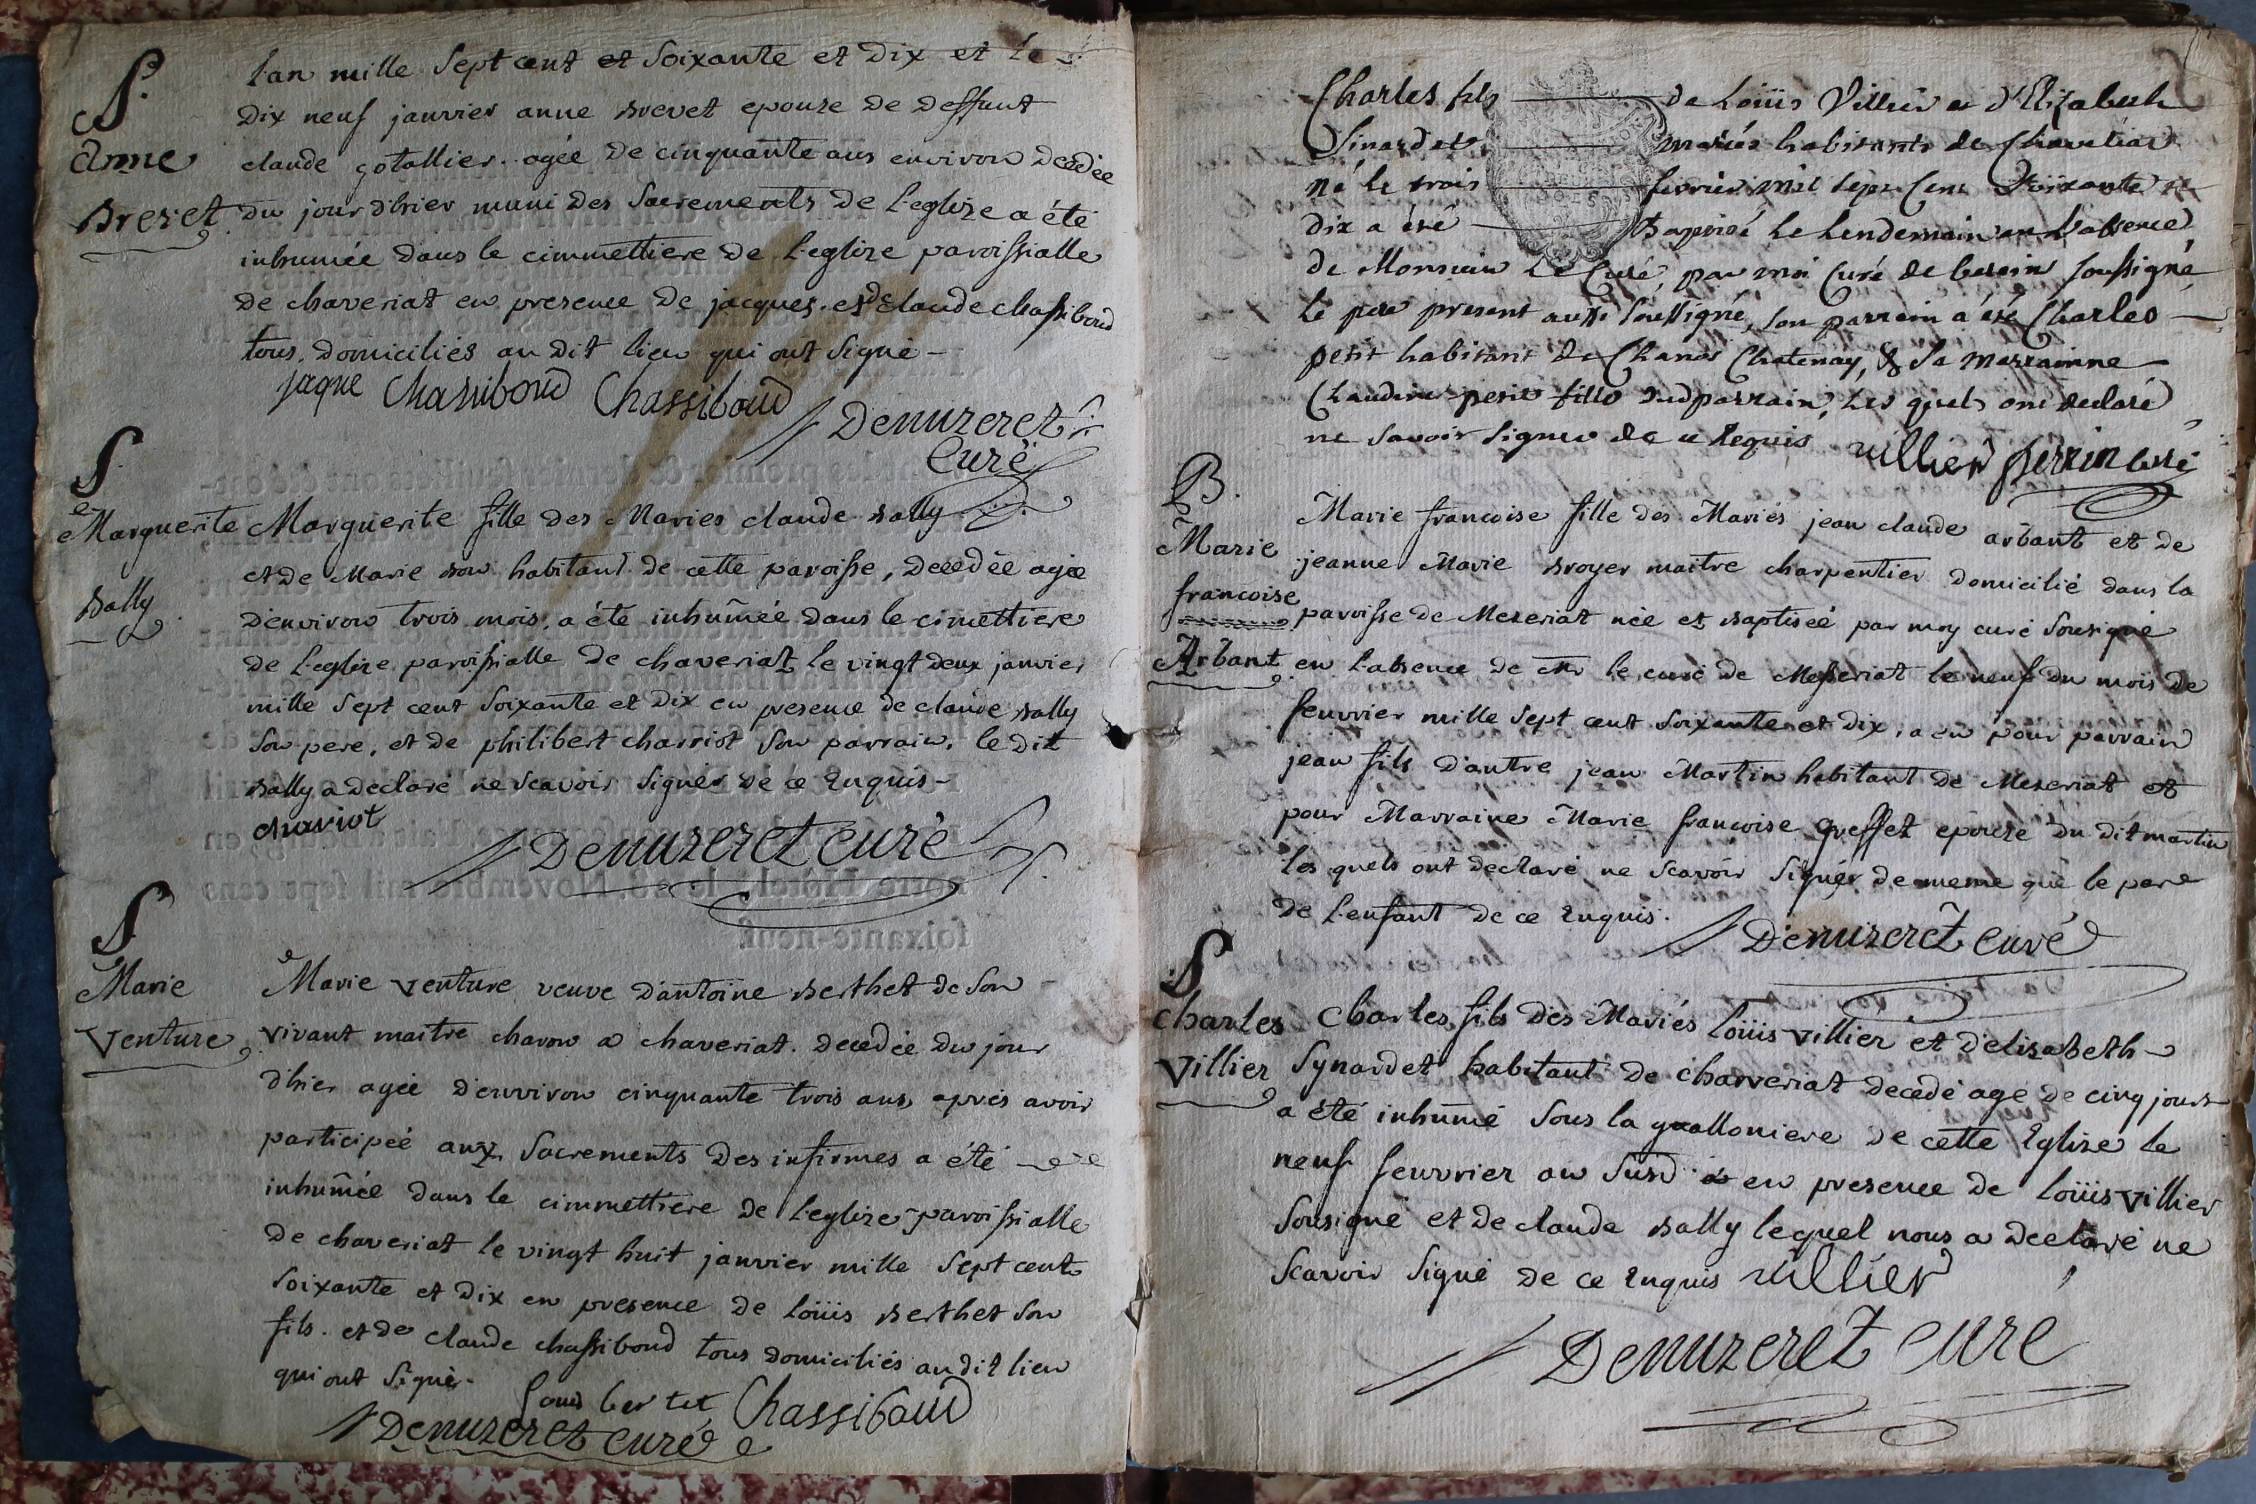 S.
Anne
Brevet
L'an mille Sept cent et Soixante et Dix et le
Dix neuf janvier anne brevet epouze de deffunt
claude gotallier. agée de cinquante ans environ decedée
du jour d'hier muni des Sacrements de L'eglize a été
inhumée dans le cimmettiere de L'eglize paroissialle
de chaveriat en presence de jacques. et de claude chassiboud
tous domiciliés au dit lieu qui ont signé -
jaque Chassiboud Chassiboud
Denuzeret
Curé
S.
Marguerite
bally
Marguerite fille des Maries claude bally
et de Marie bon habitant de cette paroisse, decedée agée
d'environ trois mois, a été inhumée dans le cimettiere
de L'eglize paroissialle de chaveriat le vingt deux janvier
mille Sept cent Soixante et Dix en presence de claude bally
Son pere, et de philibert charriot Son parrain. le dit
bally a declaré ne scavoir signer de ce Enquis -
chariot
Denuzeret curé
S.
Marie
Venture
Marie venture veuve d'antoine berthet de Son
vivant maitre charon a chaveriat. decedée du jour
d'hier agée d'environ cinquante trois ans, aprés avoir
participeé aux Sacrements des infirmes a été
inhumée dans le cimmettiere de L'eglize paroissialle
de chaveriat le vingt huit janvier mille Sept cent
Soixante et Dix en presence de Loüis berthet Son
fils. et de claude chassiboud tous domiciliés au dit lieu
qui ont signé.
Louis bertet Chassiboud
Denuzeret curé
Charles fils de Loüis Villier et d'Elizabeth
Sinardet, mariés habitants de Chaveriat
né le trois fevrier mil sept cent soixante et
dix a été Baptisé le lendemain en l'absence
de Monsieur Le Curé, par moi Curé de besein soussigné
Le pere present aussi soussigné, son parrain a été Charles
petit habitant de Chanoz Chatenay, & Sa marrainne
Claudine petit fille dud parrain, les quels ont declaré
ne savoir signer de ce Requis
villier perrin curé
B.
Marie
francoise
Arbant
Marie francoise fille des Mariés jean claude arbant et de
jeanne Marie broyer maitre charpentier domicilié dans la
paroisse de Mezeriat née et baptiseé par moy curé Sousigné
en L'absence de Mr le curé de Messeriat le neuf du mois de
feuvrier mille Sept cent Soixante et Dix, a eu pour parrain
jean fils d'autre jean Martin habitant de Mezeriat et
pour Marraine Marie francoise greffet epouze du dit martin
les quels ont declaré ne scavoir signer de meme que le pere
de L'enfant de ce Enquis.
Denuzeret curé
S.
charles
Villier
Charles fils des Mariés Loüis villier et d'elizabeth
Synardet habitant de chaveriat decedé age de cinq jours
a été inhumé Sous la galloniere de cette Eglize le
neuf feuvrier an Susd en presence de Loüis villier
Sousigné et de claude bally lequel nous a declaré ne
scavoir signé de ce Enquis villier
Denuzeret curé